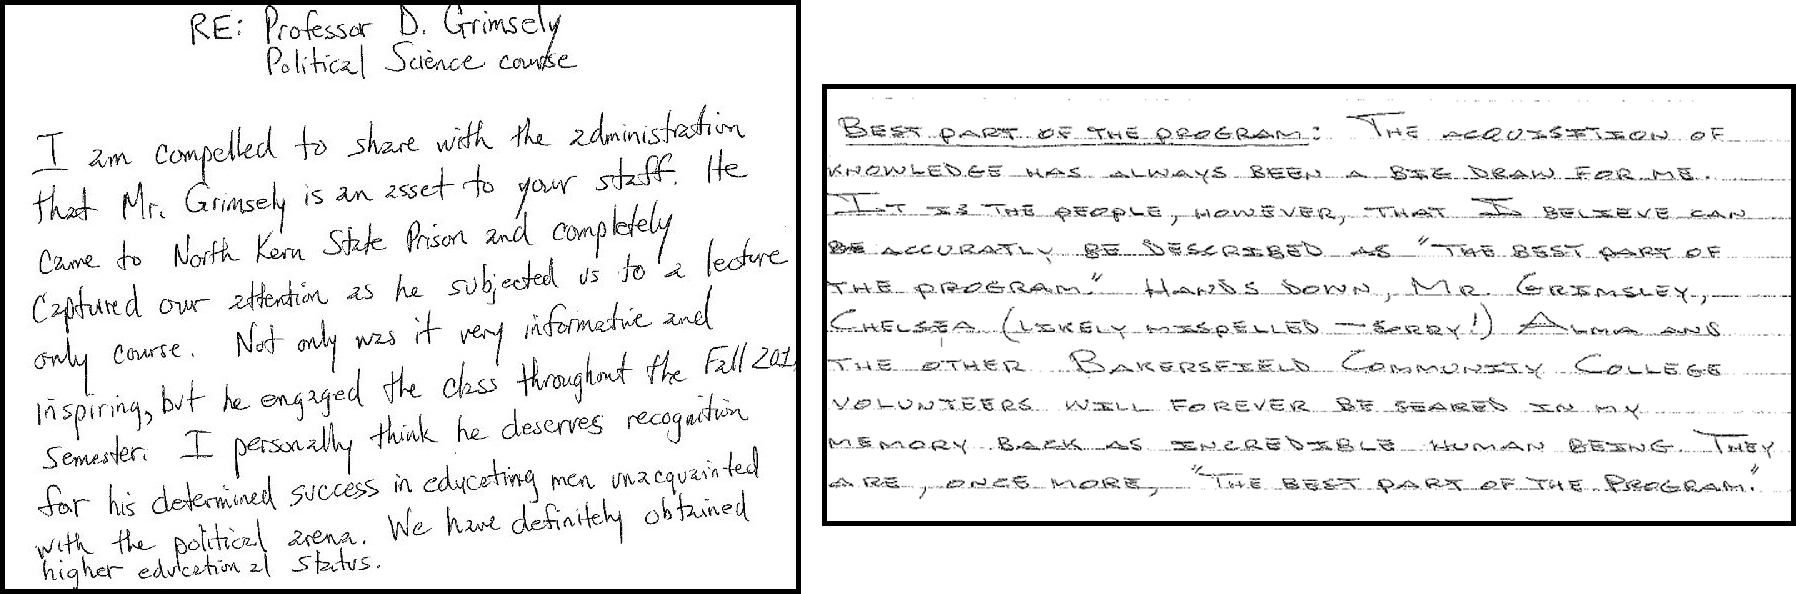 RE: Professor D. Grimsely
Political Science course
I am compelled to share with the administration
that Mr. Grimsely is an asset to your staff. He
came to North Kern State Prison and completely
captured our attention as he subjected us to a lecture
only course. Not only was it very informative and
inspiring, but he engaged the class throughout the Fall 201
semester. I personally think he deserves recognition
for his determined success in educating men unacquainted
with the political arena. We have definitely obtained
higher educational status.
BEST PART OF THE PROGRAM: THE ACQUISITION OF
KNOWLEDGE HAS ALWAYS BEEN A BIG DRAW FOR ME.
IT IS THE PEOPLE, HOWEVER, THAT I BELIEVE CAN
BE ACCURATLY BE DESCRIBED AS "THE BEST PART OF
THE PROGRAM." HANDS DOWN, MR. GRIMSLEY,
CHELSEA (LIKELY MISPELLED — SORRY!) ALMA AND
THE OTHER BAKERSFIELD COMMUNITY COLLEGE
VOLUNTEERS WILL FOREVER BE SEARED IN MY
MEMORY BACK AS INCREDIBLE HUMAN BEING. THEY
ARE, ONCE MORE, "THE BEST PART OF THE PROGRAM."